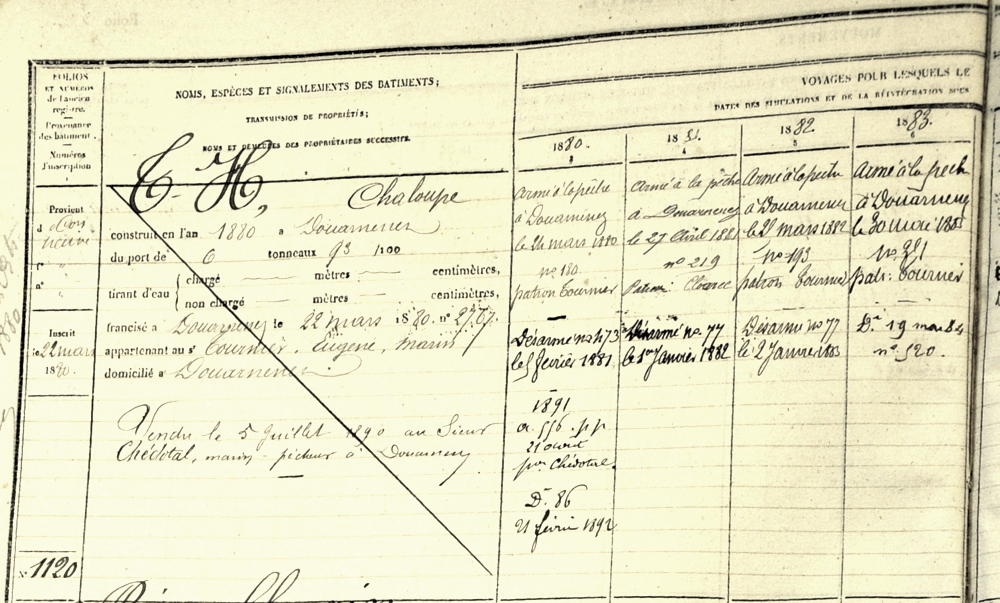 FOLIOS
ET NUMÉROS
de l'ancien
registre.
Provenance
des bâtiment.
Numéros
d'inscription
NOMS, ESPÈCES ET SIGNALEMENTS DES BATIMENTS;
TRANSMISSION DE PROPRIÉTÉS;
NOMS ET DEMEURES DES PROPRIÉTAIRES SUCCESSIFS.
VOYAGES POUR LESQUELS LE
DATES DES SIMULATIONS ET DE LA RÉINTÉGRATION SOUS
1880.
3
1881.
4
1882.
5
1883.
6
Provient
d
f°
n°
Inscrit
le 22 mars
1880.
N° 1120
T-H, Chaloupe
construit en l'an 1880 a Douarnenez
du port de 6 tonneaux 93 /100
tirant d'eau
chargé — mètres — centimètres,
non chargé — mètres — centimètres,
francisé a Douarnenez le 22 mars 1880. n° 2767.
appartenant au sr Tournier, Eugène, Marin
domicilié a Douarnenez
Vendu le 5 Juillet 1890 au Sieur
Chédotal, marin-pêcheur à Douarnenez
Armé à la pêche
à Douarnenez
le 24 mars 1880
n° 180
patron Tournier
Désarmé n° 473
le 5 février 1881
1891
21 août
par Chédotal.
D. 86
21 février 1892
Armé à la pêche
à Douarnenez
le 27 Avril 1881
n° 219
Patron
Désarmé n° 77
le 1er Janvier 1882
Armé à la pêche
à Douarnenez
le 21 mars 1882
n° 193
patron Tournier
Désarmé n° 77
le 2 Janvier 1883
Armé à la pêche
à Douarnenez
le 30 Mars 1883
n° 231
patr: Tournier
D. 19 mars 84
n° 520.